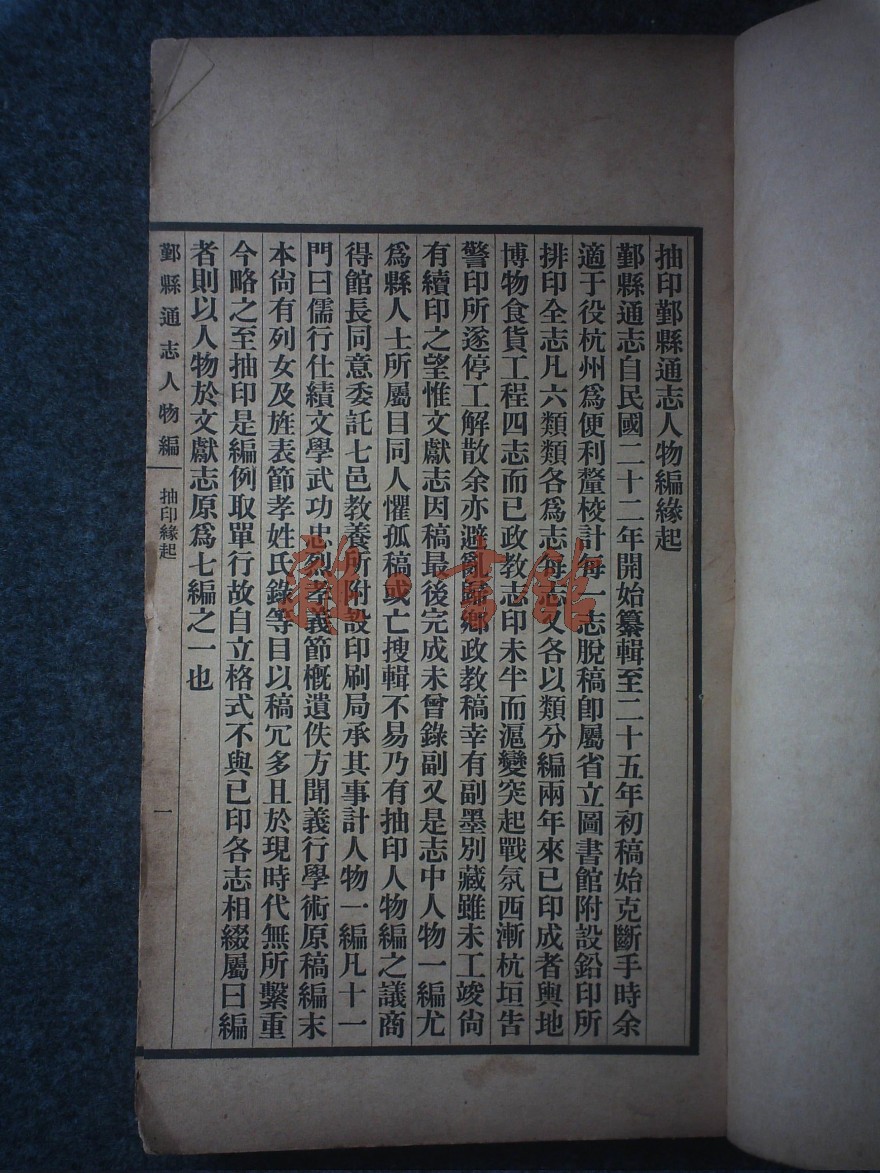 抽印鄞縣通志人物編緣起
鄞縣通志自民國二十二年開始纂輯至二十五年初稿始克斷手時余
適于役杭州爲便利釐校計每一志脫稿卽屬省立圖書館附設鉛印所
排印全志凡六類類各爲志每志又各以類分編兩年來已印成者輿地
博物食貨工程四志而已政教志印未半而滬變突起戰氛西漸杭垣告
警印所遂停工解散余亦避亂歸鄉政教稿幸有副墨別藏雖未工竣尙
有續印之望惟文獻志因稿最後完成未曾錄副又是志中人物一編尤
爲縣人士所屬目同人懼孤稿或亡搜輯不易乃有抽印人物編之議商
得館長同意委託七邑教養所附設印刷局承其事計人物一編凡十一
門曰儒行仕績文學武功忠烈孝義節槪遺佚方聞義行學術原稿編末
本尙有列女及旌表節孝姓氏錄等目以稿冗多且於現時代無所繫重
今略之至抽印是編例取單行故自立格式不與已印各志相綴屬曰編
者則以人物於文獻志原爲七編之一也
鄞縣通志人物編
抽印緣起
一
書館